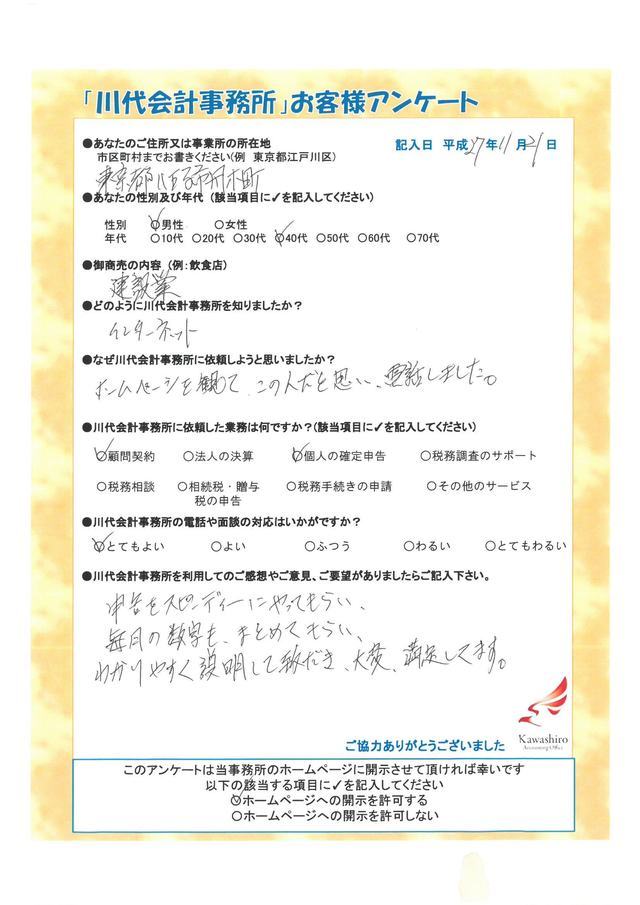 「川代会計事務所」お客様アンケート
●あなたのご住所又は事業所の所在地
記入日 平成27年11月21日
市区町村までお書きください(例 東京都江戸川区)
東京都八王子市
●あなたの性別及び年代 (該当項目に✓を記入してください)
性別 ✓男性 ○女性
年代 ○10代 ○20代 ○30代 ✓40代 ○50代 ○60代 ○70代
●御商売の内容 (例:飲食店)
建設業
●どのように川代会計事務所を知りましたか?
インターネット
●なぜ川代会計事務所に依頼しようと思いましたか?
ホームページを観て、この人だと思い、電話しました。
●川代会計事務所に依頼した業務は何ですか?(該当項目に✓を記入してください)
✓顧問契約 ○法人の決算 ✓個人の確定申告 ○税務調査のサポート
○税務相談 ○相続税・贈与 ○税務手続きの申請 ○その他のサービス
税の申告
●川代会計事務所の電話や面談の対応はいかがですか?
✓とてもよい ○よい ○ふつう ○わるい ○とてもわるい
●川代会計事務所を利用してのご感想やご意見、ご要望がありましたらご記入下さい。
申告をスピーディーにやってもらい、
毎月の数字も、まとめてもらい、
わかりやすく説明して頂き、大変、満足してます。
Kawashiro
Accounting Office
ご協力ありがとうございました
このアンケートは当事務所のホームページに開示させて頂ければ幸いです
以下の該当する項目に✓を記入してください
✓ホームページへの開示を許可する
○ホームページへの開示を許可しない